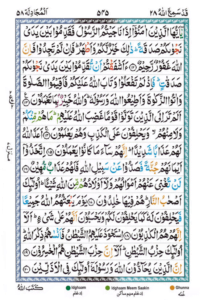 قَدْ سَمِعَ اللّٰهُ ٢٨
اَلْمُجَادِلَة ٥٨
يٰۤاَيُّهَا الَّذِيْنَ اٰمَنُوْۤا اِذَا نَاجَيْتُمُ الرَّسُوْلَ فَقَدِّمُوْا بَيْنَ يَدَيْ
نَجْوٰىكُمْ صَدَقَةً ذٰلِكَ خَيْرٌ لَّكُمْ وَاَطْهَرُ فَاِنْ لَّمْ تَجِدُوْا فَاِنَّ
اللّٰهَ غَفُوْرٌ رَّحِيْمٌ ءَاَشْفَقْتُمْ اَنْ تُقَدِّمُوْا بَيْنَ يَدَيْ نَجْوٰىكُمْ
صَدَقٰتٍ فَاِذْ لَمْ تَفْعَلُوْا وَتَابَ اللّٰهُ عَلَيْكُمْ فَاَقِيْمُوا الصَّلٰوةَ
وَاٰتُوا الزَّكٰوةَ وَاَطِيْعُوا اللّٰهَ وَرَسُوْلَهٗ وَاللّٰهُ خَبِيْرٌۢ بِمَا تَعْمَلُوْنَ
اَلَمْ تَرَ اِلَى الَّذِيْنَ تَوَلَّوْا قَوْمًا غَضِبَ اللّٰهُ عَلَيْهِمْ مَا هُمْ مِّنْكُمْ
وَلَا مِنْهُمْ وَيَحْلِفُوْنَ عَلَى الْكَذِبِ وَهُمْ يَعْلَمُوْنَ اَعَدَّ اللّٰهُ
لَهُمْ عَذَابًا شَدِيْدًا اِنَّهُمْ سَآءَ مَا كَانُوْا يَعْمَلُوْنَ اِتَّخَذُوْۤا
اَيْمَانَهُمْ جُنَّةً فَصَدُّوْا عَنْ سَبِيْلِ اللّٰهِ فَلَهُمْ عَذَابٌ مُّهِيْنٌ
لَنْ تُغْنِيَ عَنْهُمْ اَمْوَالُهُمْ وَلَاۤ اَوْلَادُهُمْ مِّنَ اللّٰهِ شَيْـًٔا اُولٰٓئِكَ
اَصْحٰبُ النَّارِ هُمْ فِيْهَا خٰلِدُوْنَ يَوْمَ يَبْعَثُهُمُ اللّٰهُ جَمِيْعًا
فَيَحْلِفُوْنَ لَهٗ كَمَا يَحْلِفُوْنَ لَكُمْ وَيَحْسَبُوْنَ اَنَّهُمْ عَلٰى شَيْءٍ اَلَاۤ
اِنَّهُمْ هُمُ الْكٰذِبُوْنَ اِسْتَحْوَذَ عَلَيْهِمُ الشَّيْطٰنُ فَاَنْسٰىهُمْ ذِكْرَ اللّٰهِ
اُولٰٓئِكَ حِزْبُ الشَّيْطٰنِ اَلَاۤ اِنَّ حِزْبَ الشَّيْطٰنِ هُمُ الْخٰسِرُوْنَ
اِنَّ الَّذِيْنَ يُحَآدُّوْنَ اللّٰهَ وَرَسُوْلَهٗۤ اُولٰٓئِكَ فِي الْاَذَلِّيْنَ
Ikhfa Meem Saakin
Ghunna